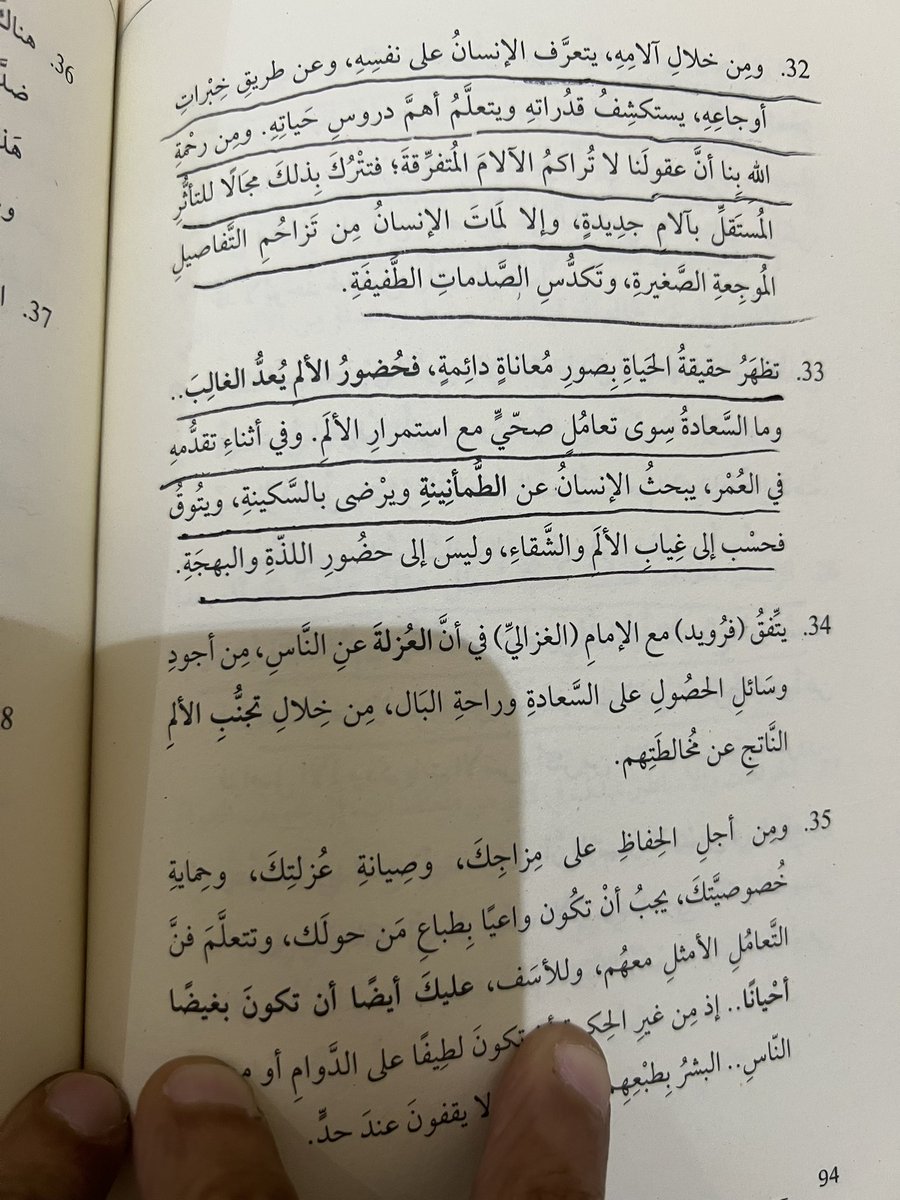 32. ومِن خلالِ آلامِهِ، يتعرَّف الإنسانُ على نفسِهِ، وعن طريقِ خِبْراتِ
أوجاعِهِ، يستكشِفُ قدُراتهِ ويتعلَّمُ أهمَّ دروسِ حَياتِهِ. ومِن رحْمةِ
اللهِ بِنا أنَّ عقولَنا لا تُراكمُ الآلامَ المُتفرِّقةَ؛ فتتْرُكَ بِذلكَ مجَالًا للتأثُّرِ
المُستَقلِّ بآلامٍ جديدةٍ، وإلا لمَاتَ الإنسانُ مِن تَزاحُمِ التَّفاصيلِ
المُوجِعةِ الصَّغيرةِ، وتَكدُّسِ الصَّدماتِ الطَّفيفَةِ.
33. تظهَرُ حقيقةُ الحَياةِ بِصورِ مُعاناةٍ دائِمةٍ، فحُضورُ الألمِ يُعدُّ الغالِبَ..
وما السَّعادةُ سِوى تعامُلٍ صحّيٍّ مع استمرارِ الألَمِ. وفي أثناءِ تقدُّمهِ
في العُمْر، يبحثُ الإنسانُ عن الطُّمأنِينةِ ويرْضى بالسَّكينةِ، ويتُوقُ
فحسْب إلى غِيابِ الألَمِ والشَّقاءِ، وليسَ إلى حضُورِ اللذّةِ والبهجَةِ.
34. يتَّفقُ (فرُويد) مع الإمامِ (الغزاليِّ) في أنَّ العُزلةَ عنِ النَّاسِ، مِن أجودِ
وسَائلِ الحصُولِ على السَّعادةِ وراحةِ البَال، مِن خِلالِ تجنُّبِ الألمِ
النَّاتجِ عن مُخالطَتِهم.
35. ومِن أجلِ الحِفاظِ على مِزاجِكَ، وصِيانةِ عُزلتِكَ، وحِمايةِ
خُصوصيَّتكَ، يجبُ أنْ تكُون واعيًا بِطباعِ مَن حولَك، وتتعلَّمَ فنَّ
التَّعامُلِ الأمثلِ معهُم، وللأسَف، عليكَ أيضًا أن تكونَ بغيضًا
أحْيانًا.. إذ مِن غيرِ تكونَ لطِيفًا على الدَّوامِ أو
النّاسِ.. البشرُ بِطبْعِهِم لا يقفونَ عندَ حدٍّ.
94
36. هناك
37.